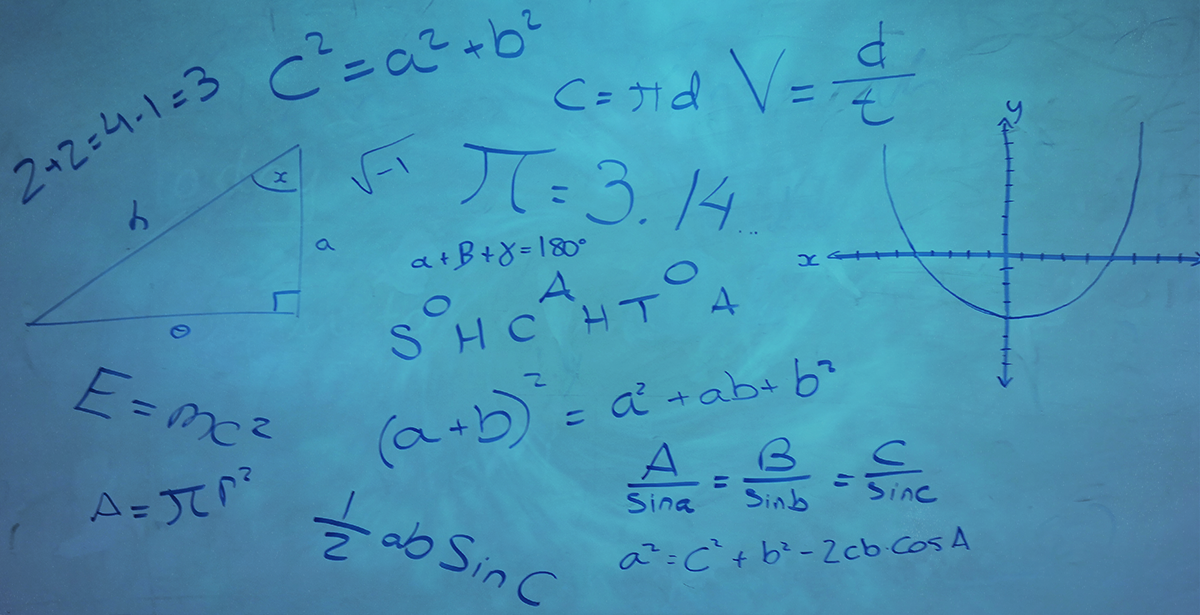 2+2=4-1=3
C²=a²+b²
C=πd
V=d/t
√-1
π=3.14...
x
h
a
o
a+B+γ=180°
SOHCAHTOA
y
x
E=mc2
(a+b)²=a²+ab+b²
A=πr²
A/sina=B/sinb=C/sinc
½abSinC
a²=c²+b²-2cb·cosA